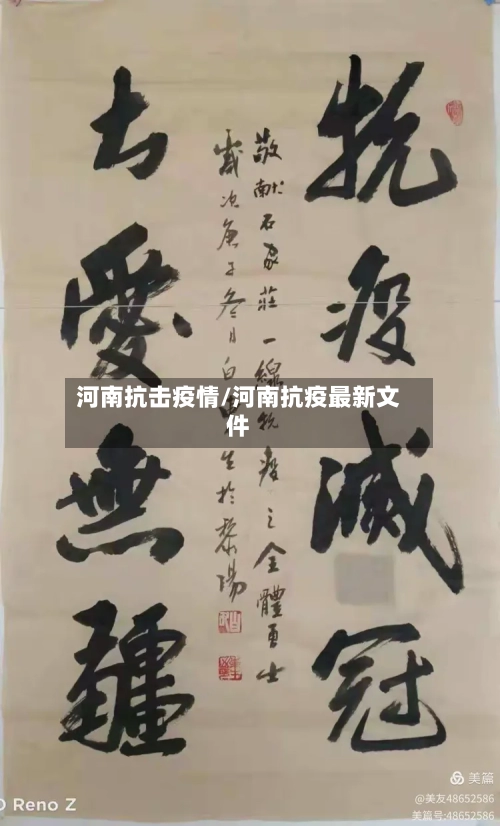 抗疫滅冠
敬献石家莊一線抗疫之全體勇士
歲次庚子冬月白
生於黎陽
大愛無疆
河南抗击疫情/河南抗疫最新文
件
O Reno Z
美篇
@美友48652586
美篇号:48652586